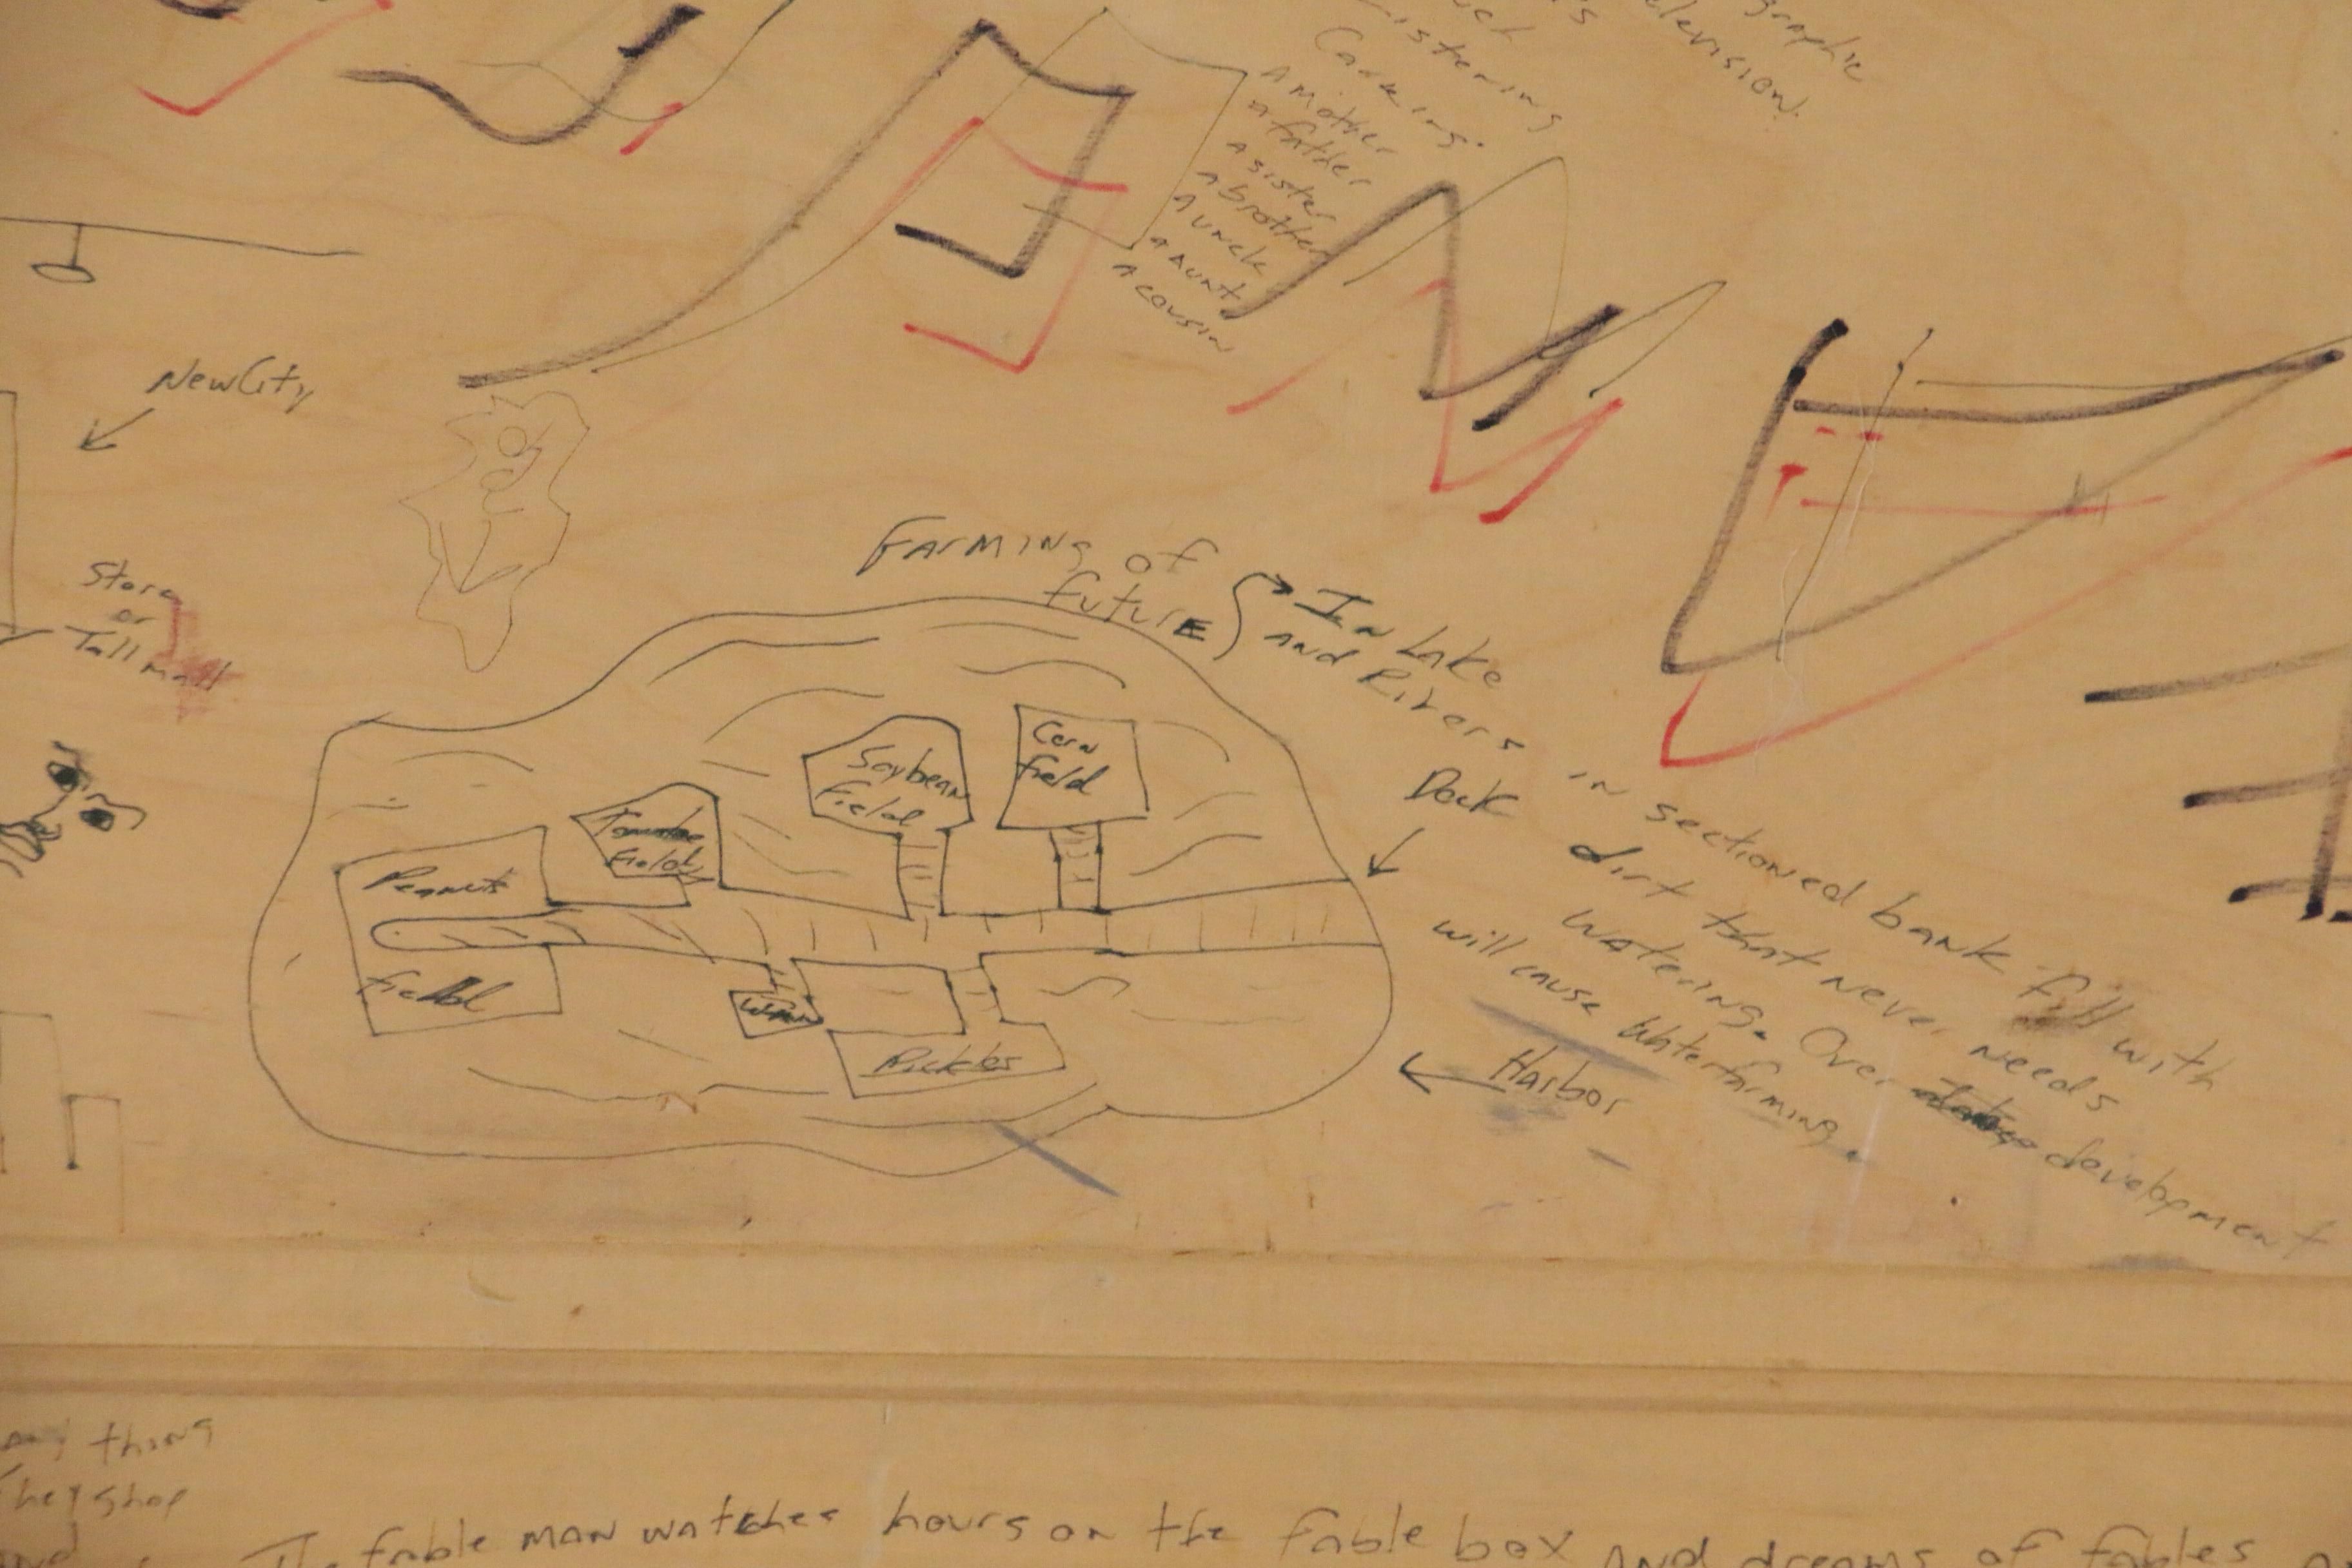 graphic
television.
istening
Caaring.
A Mother
A father
A sister
A brother
A uncle
A Aunt
A cousin
New City
Store
or
Tall mall
Farming of
future
In Lake
and Rivers
in sectioned bank fill with
dirt that never needs
watering. Over development
will cause Waterfarming.
Dock
Harbor
Soybean
Field
Corn
field
Field
Peanuts
field
Pickles
thing
They shop
fable man watches hours on the fable box and dreams of fables